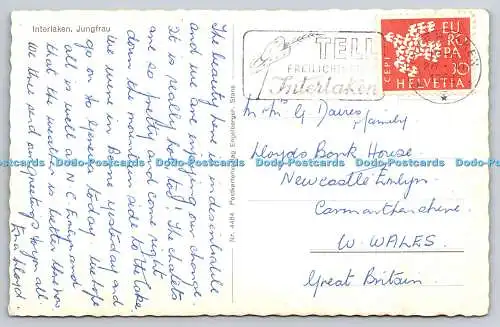 Interlaken, Jungfrau
The beauty here is indescribable
and we are enjoying our change.
It is really hot too! The chalets
are so pretty and come right
down the mountain side to the lake.
We were in Berne yesterday and
go on to Geneva today. We hope
all is well at N.C. Emlyn and
that the weather is better there now.
We three send our greetings to you all.
Ena Lloyd.
Nr. 4484 Postkartenverlag Engelberger, Stans
TELL
FREILICHTSPIELE
Interlaken
CEPT
EUROPA
30
HELVETIA
Mr & Mrs G Davies
& family
Lloyds Bank House
Newcastle Emlyn
Carmarthenshire
W. WALES
Great Britain.
Dodo-Postcards Dodo-Postcards Dodo-Postcards Dodo-Postcards Dodo-Postcards